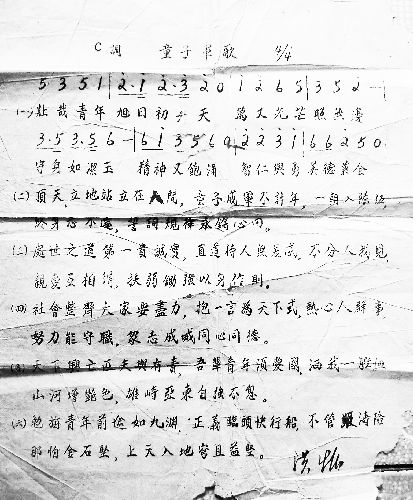 C調 童子軍歌 4/4
5 3 5 1 | 2·1 2·3 2 0 | 1 2 6 5 | 3 5 2 —
(一)壯哉青年 旭日初升天 萬丈光芒照無邊
3·5 3·5 6 — | 6 1 3 5 6 0 | 2 2 3 1 | 6 6 2 5 0
守身如潔玉 精神又飽滿 智仁與勇美德兼全
(二)頂天立地站立在人間，童子成軍不計年，一朝入隊伍
終身志不遷，誓詞規律永銘心田。
(三)處世之道第一貴誠實，直道待人無差忒，不分人我見
親愛互相積，扶弱鋤強以身作則。
(四)社會整齊大家要盡力，抱一言為天下式，熱心人辦事
努力能守職，眾志成城同心同德。
(五)天下興亡匹夫與有責，吾輩青年須愛國，洒我一腔血
山河增能色，雄峙亞東自強不息。
(六)勉哉青年前途如九淵 正義臨頭快行船，不管 濤險
那怕金石堅，上天入地窮且益堅。